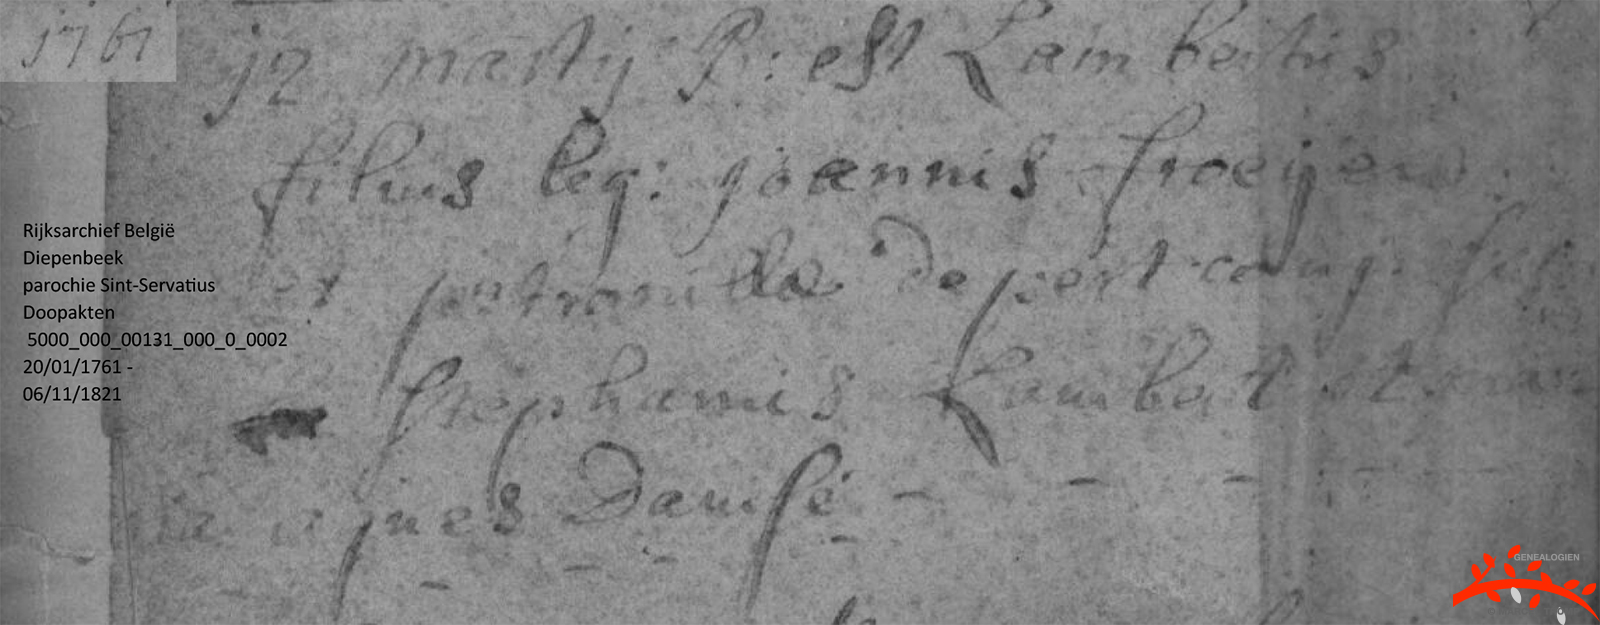 1761
j2 martij B: est Lambertus
filius leg: joannis froeijen
et petronilla de pert comp: susc
stephanis Lambert et mar
ia agnes Damsé
Rijksarchief België
Diepenbeek
parochie Sint-Servatius
Doopakten
5000_000_00131_000_0_0002
20/01/1761 -
06/11/1821
GENEALOGIEN